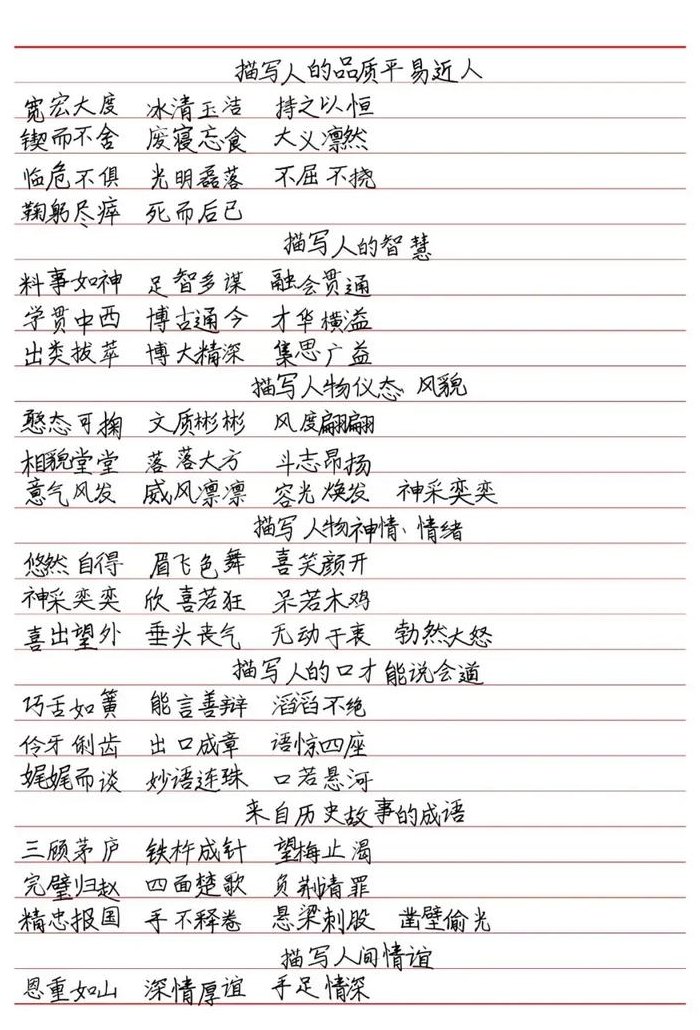 描写人的品质平易近人
宽宏大度 冰清玉洁 持之以恒
锲而不舍 废寝忘食 大义凛然
临危不俱 光明磊落 不屈不挠
鞠躬尽瘁 死而后已
描写人的智慧
料事如神 足智多谋 融会贯通
学贯中西 博古通今 才华横溢
出类拔萃 博大精深 集思广益
描写人物仪态、风貌
憨态可掬 文质彬彬 风度翩翩
相貌堂堂 落落大方 斗志昂扬
意气风发 威风凛凛 容光焕发 神采奕奕
描写人物神情、情绪
悠然自得 眉飞色舞 喜笑颜开
神采奕奕 欣喜若狂 呆若木鸡
喜出望外 垂头丧气 无动于衷 勃然大怒
描写人的口才能说会道
巧舌如簧 能言善辩 滔滔不绝
伶牙俐齿 出口成章 语惊四座
娓娓而谈 妙语连珠 口若悬河
来自历史故事的成语
三顾茅庐 铁杵成针 望梅止渴
完璧归赵 四面楚歌 负荆请罪
精忠报国 手不释卷 悬梁刺股 凿壁偷光
描写人间情谊
恩重如山 深情厚谊 手足情深